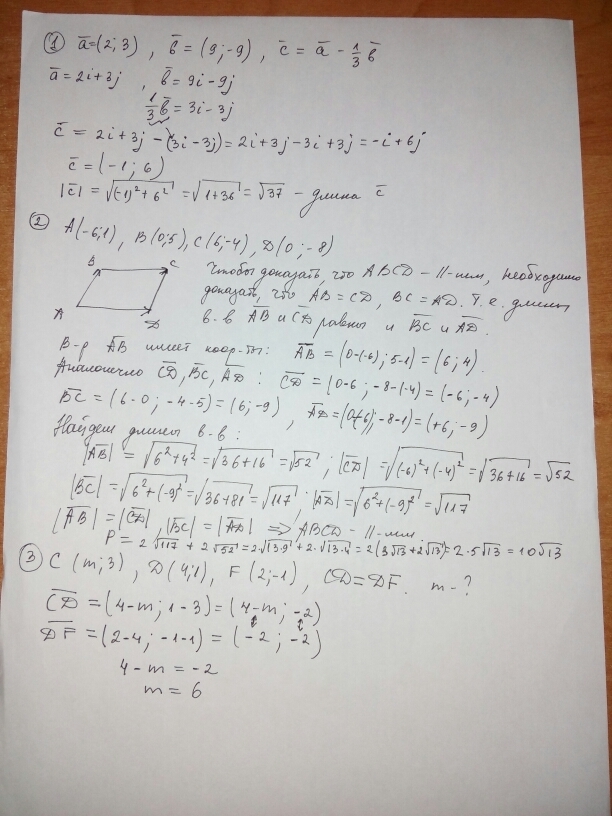 ① a̅=(2; 3) , b̅ = (9; -9) , c̅ = a̅ - 1/3 b̅
a̅ = 2i+3j , b̅ = 9i-9j
1/3 b̅ = 3i-3j
c̅ = 2i+3j-(3i-3j)= 2i+3j-3i+3j =-i+6j
c̅ = (-1; 6)
|c̅| = √((-1)²+6²) = √(1+36) = √37 - длина c̅
② A(-6;1), B(0;5), C(6;-4), D(0;-8)
B C
A D
Чтобы доказать, что ABCD - ||-мм, необходимо
доказать, что AB = CD, BC = AD. Т.е. длины
в-в A̅B̅ и C̅D̅ равны и B̅C̅ и A̅D̅.
В-р A̅B̅ имеет коор-ты: A̅B̅ = (0-(-6); 5-1) = (6; 4).
Аналогично C̅D̅, B̅C̅, A̅D̅ : C̅D̅ = (0-6; -8-(-4)) = (-6; -4)
B̅C̅ = (6-0; -4-5) = (6; -9) , A̅D̅ = (0+6; -8-1) = (+6; -9)
Найдем длины в-в :
|A̅B̅| = √(6²+4²) = √(36+16) = √52 ; |C̅D̅| = √((-6)²+(-4)²) = √(36+16) = √52
|B̅C̅| = √(6²+(-9)²) = √(36+81) = √117 ; |A̅D̅| = √(6²+(-9)²) = √117
|A̅B̅| = |C̅D̅| , |B̅C̅| = |A̅D̅| => ABCD - ||-мм.
P = 2√117 + 2√52 = 2·√(13·9) + 2·√(13·4) = 2(3√13+2√13) = 2·5√13 = 10√13
③ C (m; 3) , D(4;1) , F(2;-1) , C̅D̅ = D̅F̅. m-?
C̅D̅ = (4-m; 1-3) = (4-m; -2)
D̅F̅ = (2-4; -1-1) = (-2; -2)
4-m = -2
m = 6